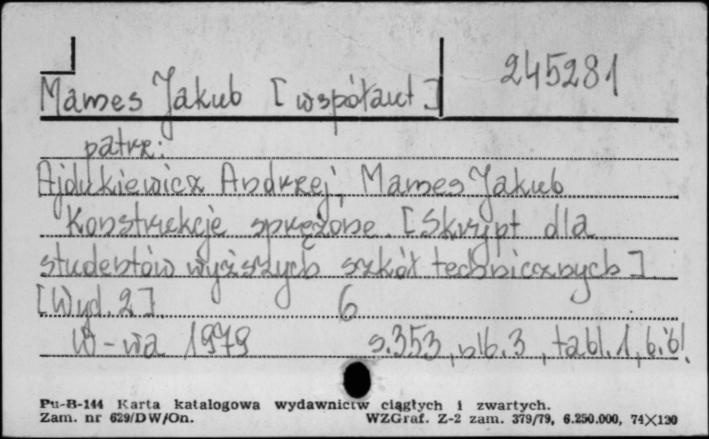 245281
Mames Jakub [współaut]
patrz:
Ajdukiewicz Andrzej, Mames Jakub
Konstrukcje sprężone. [Skrypt dla
studentów wyższych szkół technicznych]
[Wyd. 2]. 6
W-wa 1979 s. 353, nlb. 3, tabl. 1, bibl.
Pu-B-144 Karta katalogowa wydawnictw ciągłych i zwartych.
Zam. nr 629/DW/On. WZGraf. Z-2 zam. 379/79, 6.250.000, 74×120